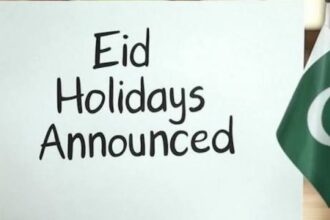 Eid
Holidays
Announced